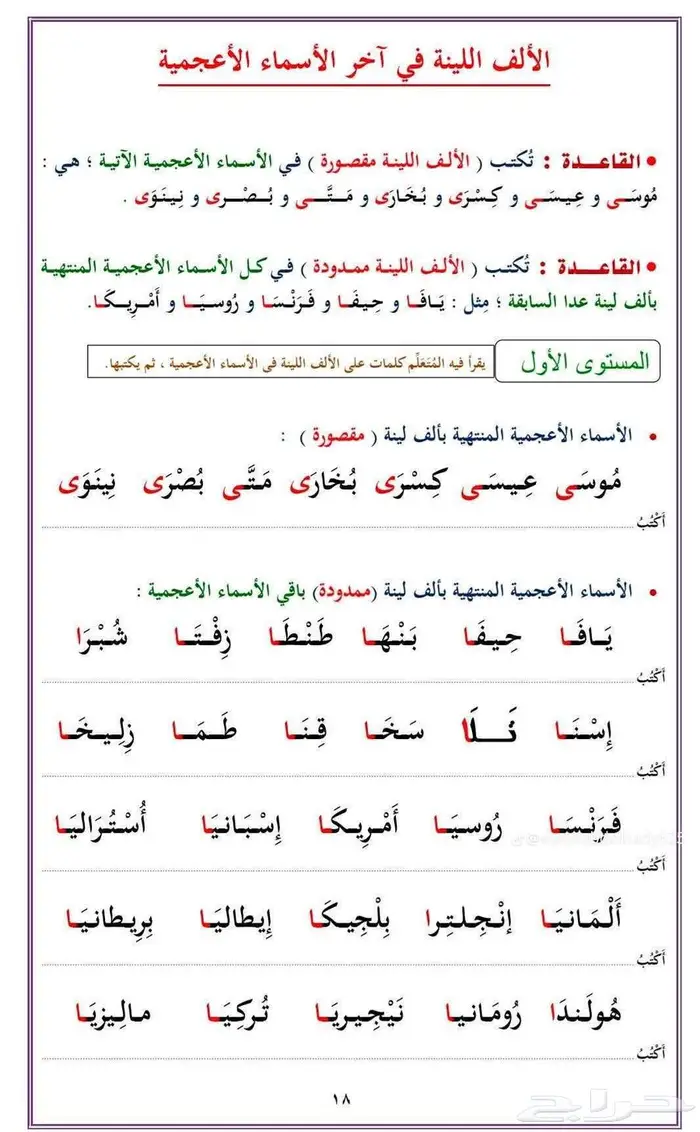 الألف اللينة في آخر الأسماء الأعجمية
• القاعـدة : تُكتب ( الألف اللينة مقصورة ) في الأسماء الأعجمية الآتية ؛ هي :
مُوسَى و عِيسَى و كِسْرَى و بُخَارَى و مَتَّى و بُصْرى و نِينَوَى .
• القاعـدة : تُكتب ( الألف اللينة ممدودة ) في كل الأسماء الأعجمية المنتهية
بألف لينة عدا السابقة ؛ مِثل : يَافَا و حِيفَا و فَرَنْسَا و رُوسيَا و أَمْرِيكَا.
المستوى الأول
يقرأ فيه المُتَعَلِّم كلمات على الألف اللينة في الأسماء الأعجمية ، ثم يكتبها.
• الأسماء الأعجمية المنتهية بألف لينة ( مقصورة ) :
مُوسَى عِيسَى كِسْرَى بُخَارَى مَتَّى بُصْرَى نِينَوَى
أَكْتُبُ
• الأسماء الأعجمية المنتهية بألف لينة (ممدودة) باقي الأسماء الأعجمية :
يَافَا حِيفَا بَنْهَا طَنْطَا زِفْتَا شُبْرَا
أَكْتُبُ
إِسْنَا سَخَا قِنَا طَمَا زِلِيخَا
أَكْتُبُ
فَرَنْسَا رُوسيَا أَمْرِيكَا إِسْبَانيَا أُسْتُرَاليَا
أَكْتُبُ
أَلْمَانيَا إنْجِلتِرا بِلْجِيكَا إِيطاليَا بِرِيطانيَا
أَكْتُبُ
هُولَندَا رُومَانيا نَيْجِيريَا تُركِيَا مالِيزيَا
أَكْتُبُ
١٨
حراج